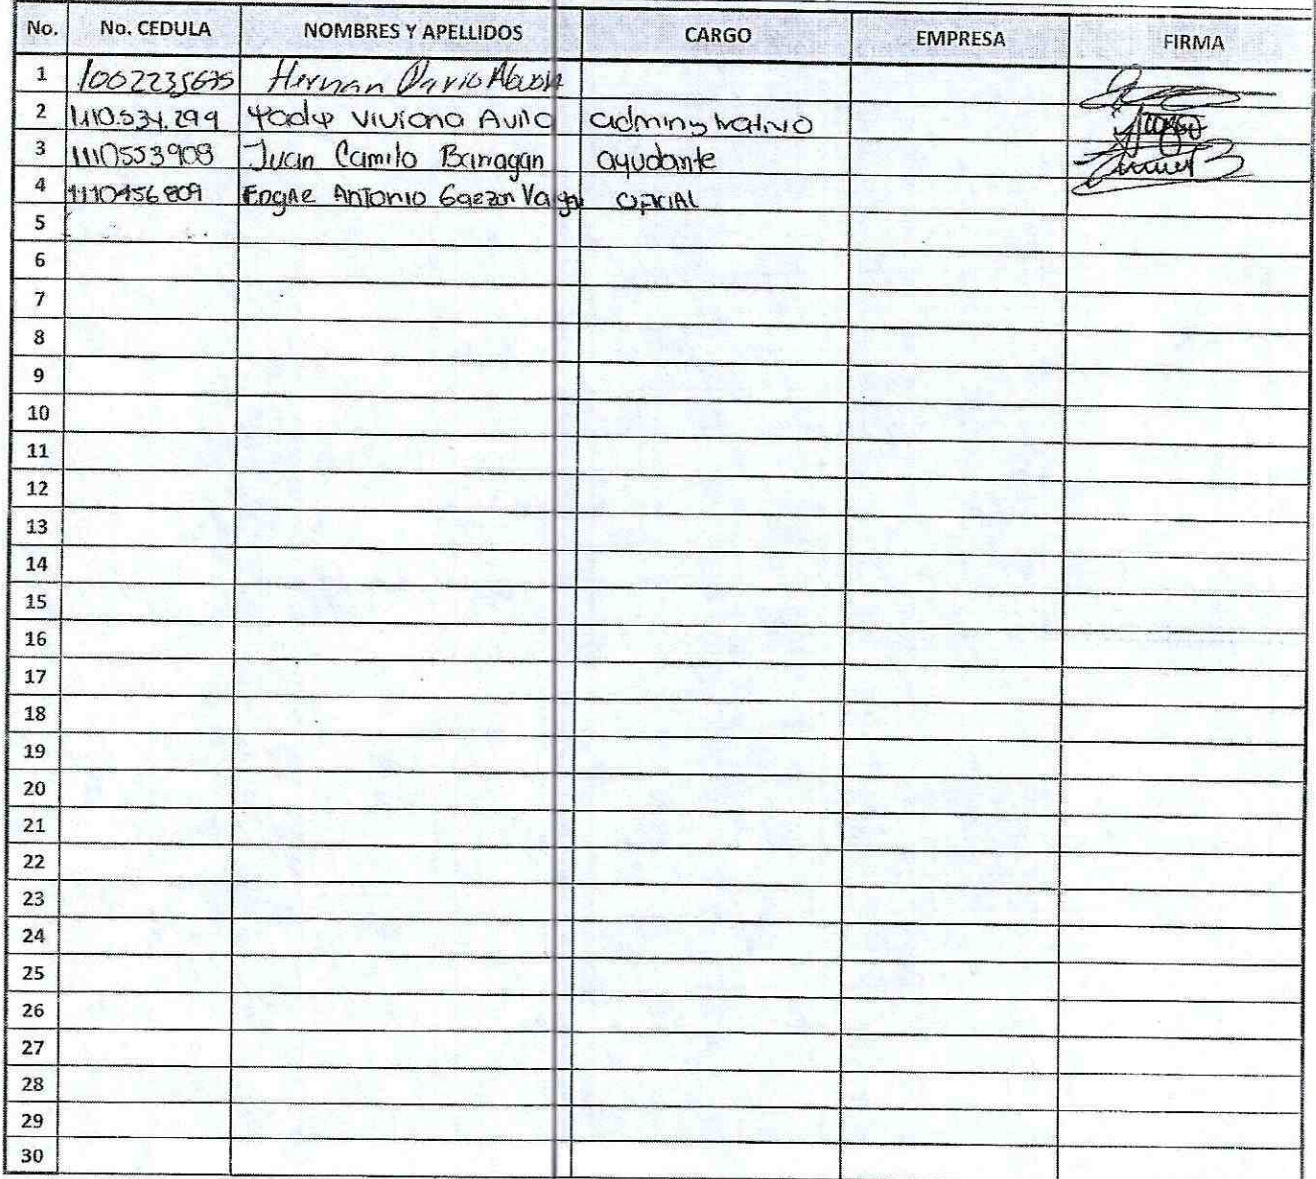 No. No. CEDULA NOMBRES Y APELLIDOS CARGO EMPRESA FIRMA
1 Hernan Dario
2 1.110.534.299 Yady Viviana Avila administrativo
3 1110553908 Juan Camilo Barragan ayudante
4 1110456809 EDGAR ANTONIO GARZON OFICIAL
5
6
7
8
9
10
11
12
13
14
15
16
17
18
19
20
21
22
23
24
25
26
27
28
29
30